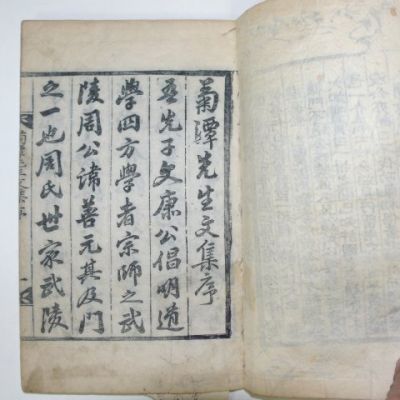 菊潭先生文集序
先子文康公倡明道
學四方學者宗師之武
陵周公諱善元其及門
之一也周氏世家武陵